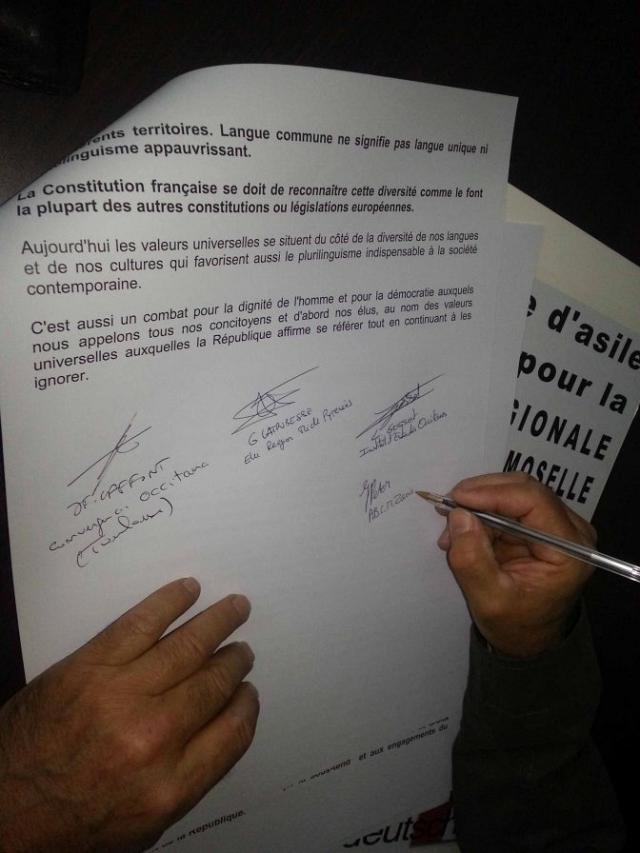 territoires. Langue commune ne signifie pas langue unique ni
appauvrissant.
La Constitution française se doit de reconnaître cette diversité comme le font
la plupart des autres constitutions ou législations européennes.
Aujourd'hui les valeurs universelles se situent du côté de la diversité de nos langues
et de nos cultures qui favorisent aussi le plurilinguisme indispensable à la société
contemporaine.
C'est aussi un combat pour la dignité de l'homme et pour la démocratie auxquels
nous appelons tous nos concitoyens et d'abord nos élus, au nom des valeurs
universelles auxquelles la République affirme se référer tout en continuant à les
ignorer.
JF. LAFFONT
Convergència Occitana
(Toulouse)
G LATRUBESSE
d'asile
pour la
MOSELLE
et aux engagements du
République.